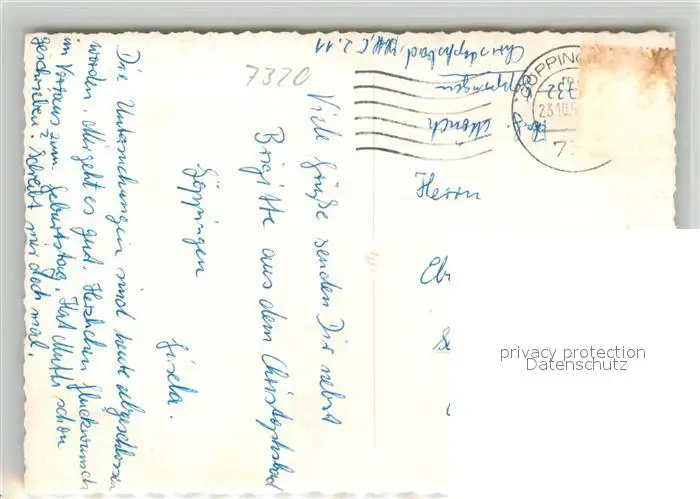 7320
GÖPPINGEN
23.10.
73
Mönch
732 Göppingen
Christophsbad,
Herrn
Viele Grüße senden Dir nebst
Brigitte aus dem Christophsbad
Göppingen
Gisela.
Die Untersuchungen sind heute abgeschlossen
worden. Mir geht es gut. Herzlichen Glückwunsch
im Voraus zum Geburtstag. Hat Mutti schon
geschrieben? Schreibt mir doch mal.
privacy protection
Datenschutz